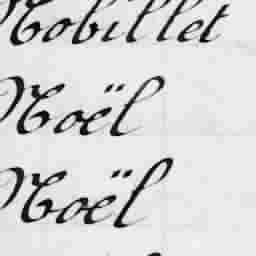 Nobillet
Noël
Noël